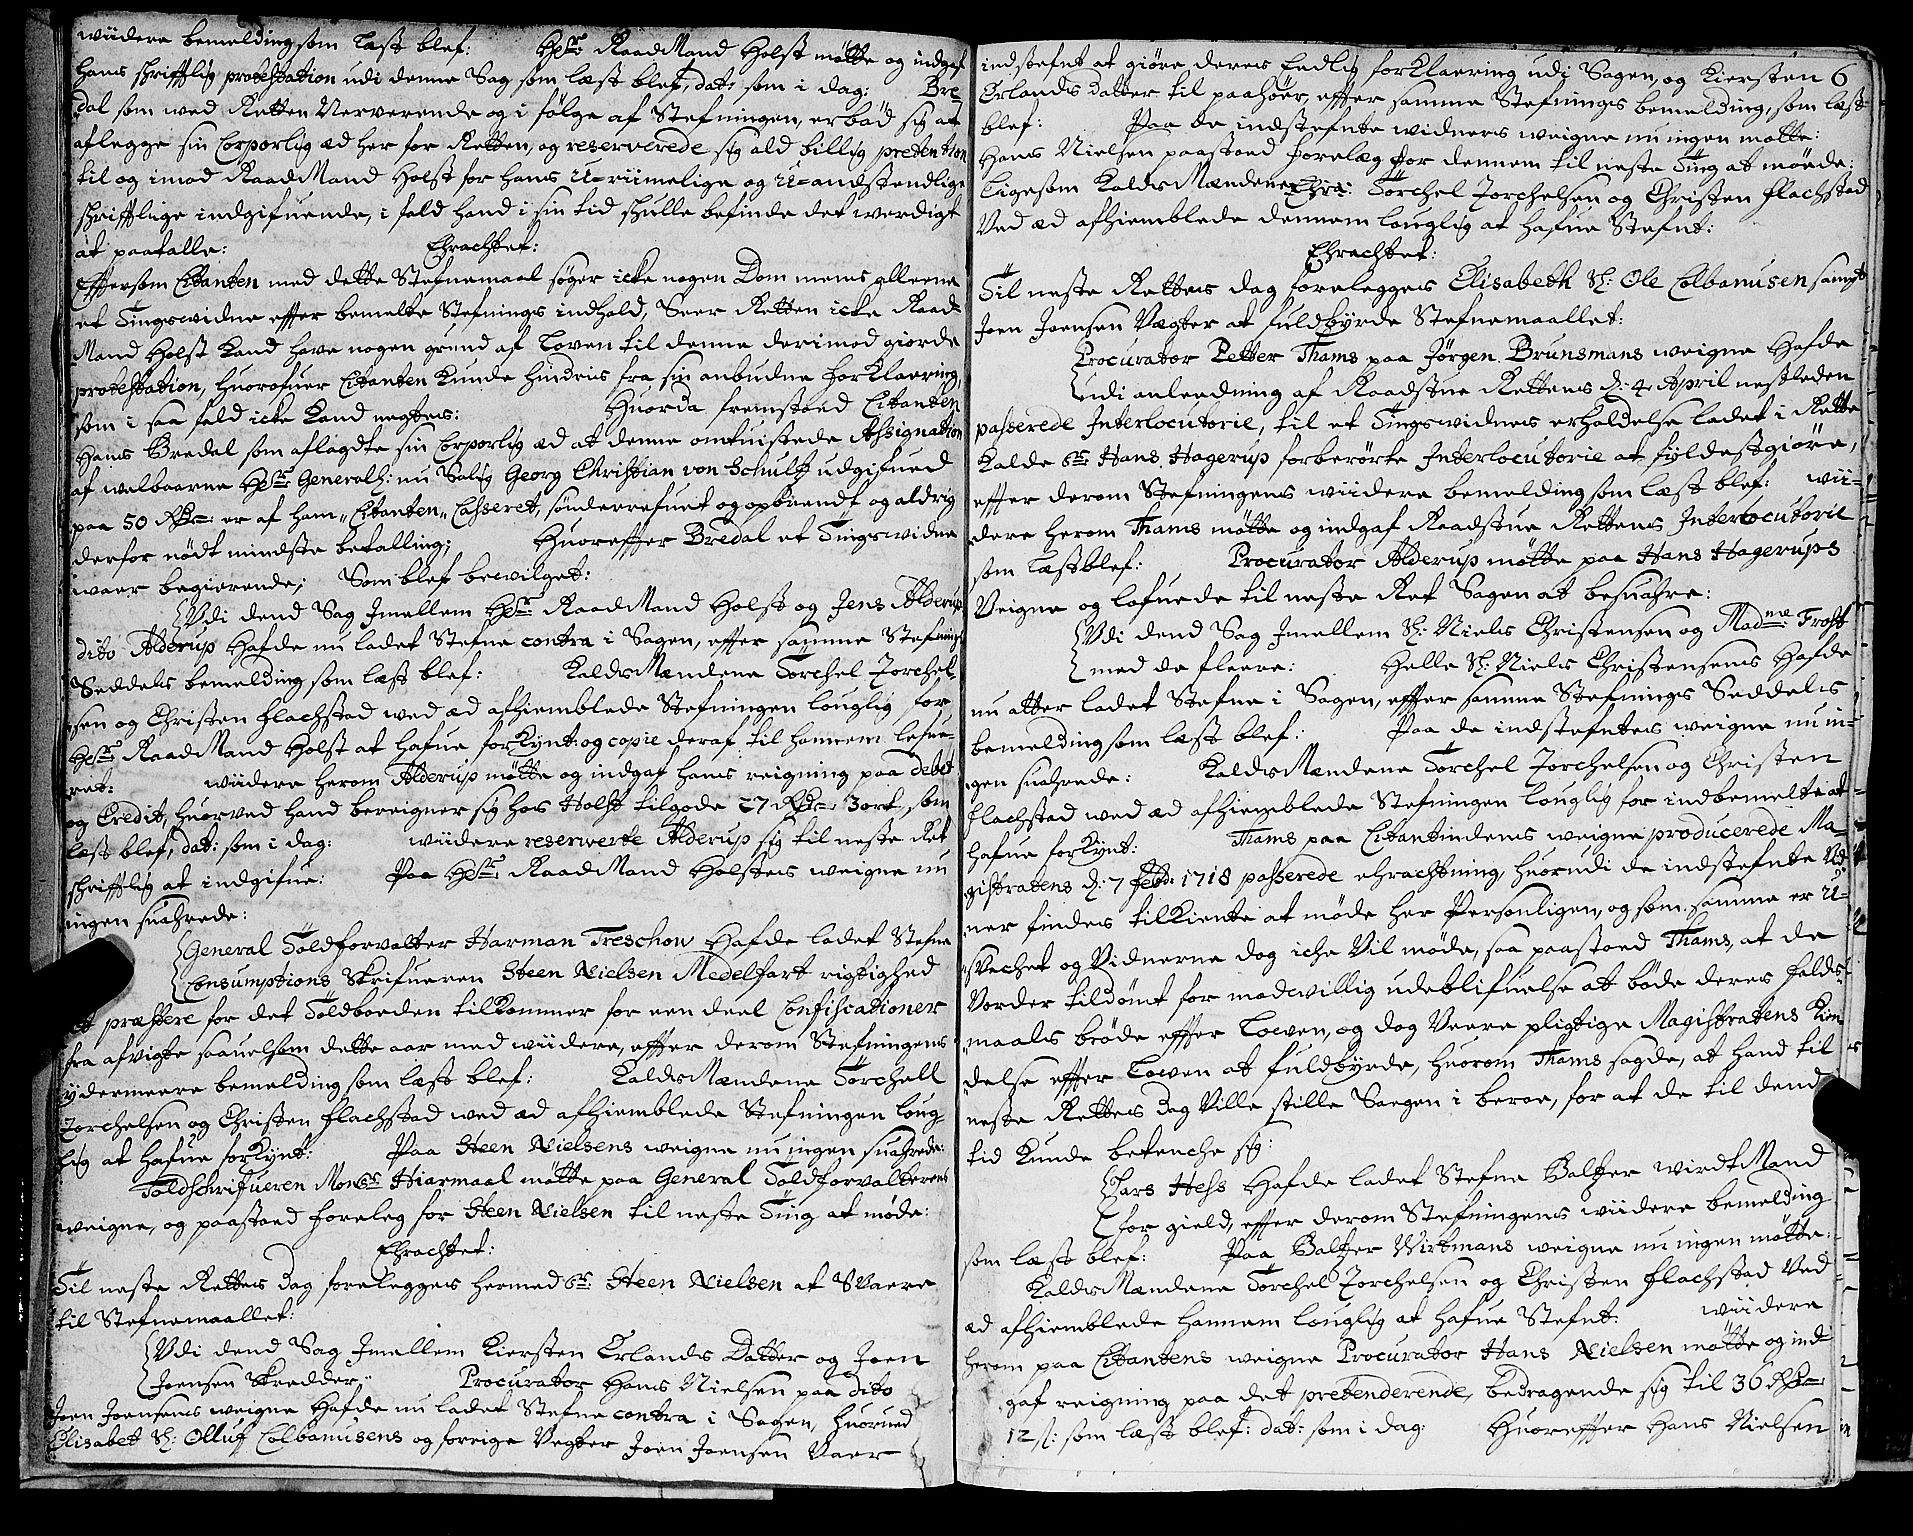 widere bemelding som læst blef: Hr: RaadMand Holst møtte og indgaf
hans schrifftlig protestation udi denne Sag som læst blef, dat: som i dag: Bre-
dal som ved Retten Nerverende og i følge af Stefningen, erbød sig at
aflegge sin Corporlig æd her for Retten, og reserverede sig ald billig pretention
til og imod RaadMand Holst for hans u-riimelige og u-anstendlige
schrifftlige indgifuende, i fald hand i sin tid schulle befinde det werdigt
at paatalle: Ehrachtet:
Efftersom Citanten med dette Stefnemaal søger icke nogen Dom mens alleene
et Tingswidne effter bemelte Stefnings indhold, Seer Retten icke Raad-
Mand Holst kand have nogen grund af Loven til denne derimod giorde
protestation, huorofuer Citanten kunde hindris fra sin anbudne forklaering,
som i saa fald icke kand negtes: Huorda fremstoed Citanten
Hans Bredal som aflagdte sin Corporlig æd at denne omtuistede Assignation
af welbaarne Hr: General: nu Salig Georg Christian von Schultz udgifued
paa 50 Rdr: er af ham, Citanten, Casseret, sønderrefuet og opbrendt og aldrig
derfor nødt mindste betalling; Huoreffter Bredal et Tingswidne
waer begierende; Som blef bewilget:
Udi dend Sag Jmellem Hr: RaadMand Holst og Jens Alderup
dito Alderup Hafde nu ladet Stefne contra i Sagen, effter samme Stefnings
Seddels bemelding som læst blef: KaldsMændene Torchel Torchel-
sen og Christen Flachstad wed æd afhiemblede Stefningen louglig for
Hr: RaadMand Holst at hafue forkynt: og copie deraf til hannem lefue-
ret: widere herom Alderup møtte og indgaf hans reigning paa debet
og Credit, huorved hand bereigner sig hos Holst tilgode 27 Rdr: 3 ort, som
læst blef, dat: som i dag: widere reserverte Alderup sig til neste Ret
schrifftlig at indgifue: Paa Hr: RaadMand Holstes weigne nu
ingen suahrede:
General Toldforvalter Harman Treschow Hafde ladet Stefne
Consumptions Skrifueren Steen Nielsen Medelfart rigtighed
at præstere for det Toldboeden tilkommer for een deel Confiscationer
fra afvigte saauelsom dette aar med widere, effter derom Stefningens
ydermeere bemelding som læst blef: KaldsMændene Torchell
Torchelsen og Christen Flachstad wed æd afhiemblede Stefningen loug-
lig at hafue forkynt: Paa Steen Nielsens weigne nu ingen suahrede:
Toldschrifueren Monsr: Hiarmaal møtte paa General Toldforvalterens
weigne, og paastoed foreleg for Steen Nielsen til neste Ting at møde:
Ehrachtet:
Til neste Rettes dag forelegges hermed Sr: Steen Nielsen at Svaere
til Stefnemaallet:
Udi dend Sag Jmellem Kiersten Erlands Datter og Joen
Joensen Skredder, Procurator Hans Nielsen paa dito
Joen Joensens weigne Hafde nu ladet Stefne contra i Sagen, huorued
Elisabet Sl: Olluf Colbanusens og forrige Vegter Joen Joensen Vaer
indstefnt at giøre deres Eedlig forklaering udi Sagen, og Kiersten 6
Erlands datter til paahøer, effter samme Stefnings bemelding, som læst
blef: Paa de indstefnte widners weigne nu ingen møtte:
Hans Nielsen paastoed forelæg for dennem til neste Ting at møede;
Ligesom KaldsMændene Torchel Torchelsen og Christen Flachstad
Ved æd afhiemblede dennem louglig at hafue Stefnt:
Ehrachtet:
Til neste Rettes dag forelegges Elisabeth Sl: Ole Colbanusen sampt
Joen Joensen Vægter at fuldbyrde Stefnemaallet:
Procurator Petter Thams paa Jørgen Brunsmans weigne Hafde
udi anleedning af Raadstue Rettens d: 4 April nestleden
passerede Interlocutorie, til et Tingswidnes erholdelse ladet i Rette
kalde Sr: Hans Hagerup forberørte Interlocutorie at fyldestgiøre,
effter derom Stefningens widere bemelding som læst blef: wii-
dere herom Thams møtte og indgaf Raadstue Rettens Interlocutorie
som læst blef: Procurator Alderup møtte paa Hans Hagerups
Veigne og lofuede til neste Ret Sagen at besuahre:
Udi dend Sag Jmellem Sl: Niels Christensen og Madme: Frost
med de fleere: Helle Sl: Niels Christensens Hafde
nu atter ladet Stefne i Sagen, effter samme Stefnings Seddels
bemelding som læst blef: Paa de indstefntes weigne nu in-
gen suahrede: KaldsMændene Torchel Torchelsen og Christen
Flachstad wed æd afhiemblede Stefningen louglig for indbemelte at
hafue forkynt: Thams paa Citantindens weigne producerede Ma-
gistratens d: 7 Febr: 1718 passerede ehrachtning, huorudi de indstefnte Vid-
ner findes tilkiente at møde her Personligen, og som samme er u-
svechet og Vidnerne dog iche Vil møde, saa paastoed Thams, at de
Vorder tildømt for modwillig udeblifuelse at bøde deres falds-
maals brøde effter Lowen, og dog Veere pligtige Magistratens Kien-
delse effter Lowen at fuldbyrde, huorom Thams sagde, at hand til
neste Rettes dag Ville stille Saegen i beroe, for at de til dend
tid kunde betenche sig:
Lars Hess Hafde ladet Stefne Baltzer WirdtMand
for gield, effter derom Stefningens widere bemelding
som læst blef: Paa Baltzer Wirtmans weigne nu ingen møtte:
KaldsMændene Torchel Torchelsen og Christen Flachstad Ved
æd afhiemblede hannem louglig at hafue Stefnt: widere
herom paa Citantens weigne Procurator Hans Nielsen møtte og ind-
gaf reigning paa det pretenderende, bedragende sig til 36 Rdr:
12 s: som læst blef: dat: som i dag: Huoreffter Hans Nielsen